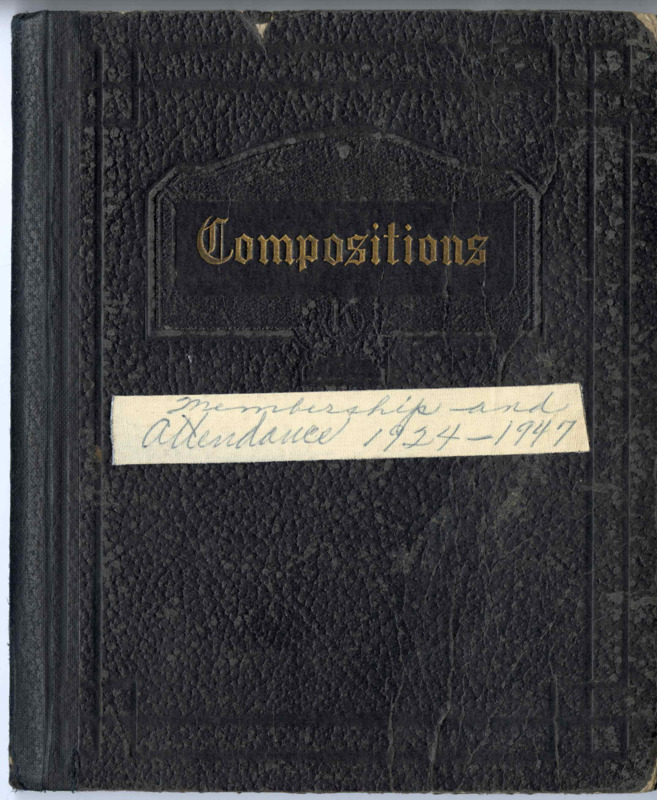 Compositions
Membership and
Attendance 1924-1947